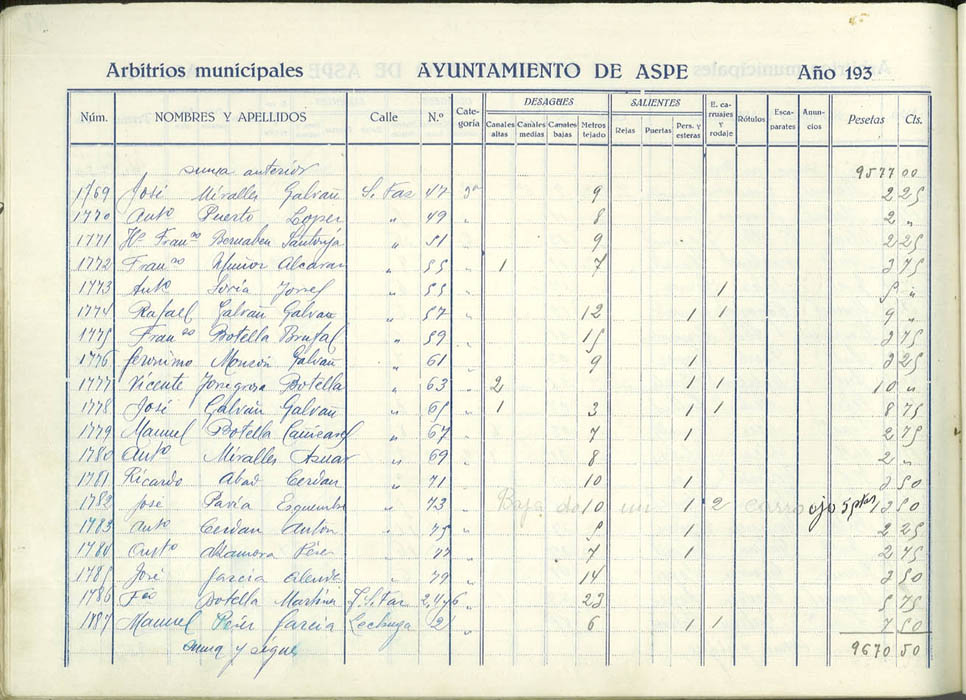 Arbitrios municipales AYUNTAMIENTO DE ASPE Año 193
Núm. NOMBRES Y APELLIDOS Calle N.º Cate-goría DESAGUES Canales altas Canales medias Canales bajas Metros tejado SALIENTES Rejas Puertas Pers. y esteras E. ca-rruajes y rodaje Rótulos Esca-parates Anun-cios Pesetas Cts.
suma anterior 9577 00
1769 José Miralles Galvañ S. Faz 47 3ª 9 2 25
1770 Antº Puerto Lopez " 49 " 8 2 "
1771 Hº Franco Bernabeu Santonja " 51 " 9 2 25
1772 Franco Muñoz Alcaraz " 55 " 1 7 3 75
1773 Antº " 55 " 1 5 "
1774 Rafael Galvañ Galvañ " 57 " 12 1 1 9 "
1775 Franco Botella Brufal " 59 " 15 3 75
1776 Jeronimo Galvañ " 61 " 9 1 3 25
1777 Vicente Botella " 63 " 2 1 1 10 "
1778 José Galvañ Galvañ " 65 " 1 3 1 1 8 75
1779 Manuel Botella " 67 " 7 1 2 75
1780 Antº Miralles Aznar " 69 " 8 2 "
1781 Ricardo Abad Cerdan " 71 " 10 1 3 50
1782 José Pavia Esquembre " 73 " Baja de 10 un 1 2 carro ojo 5 ptas 13 50
1783 Antº Cerdan Anton " 75 " 5 1 2 25
1784 Altamora Pérez " 77 " 7 1 2 75
1785 José Garcia " 79 " 14 3 50
1786 Botella Martinez S. Faz 2,4 y 6 " 23 5 75
1787 Manuel Perez Garcia Lechuga 2 " 6 1 1 7 50
suma y sigue 9670 50